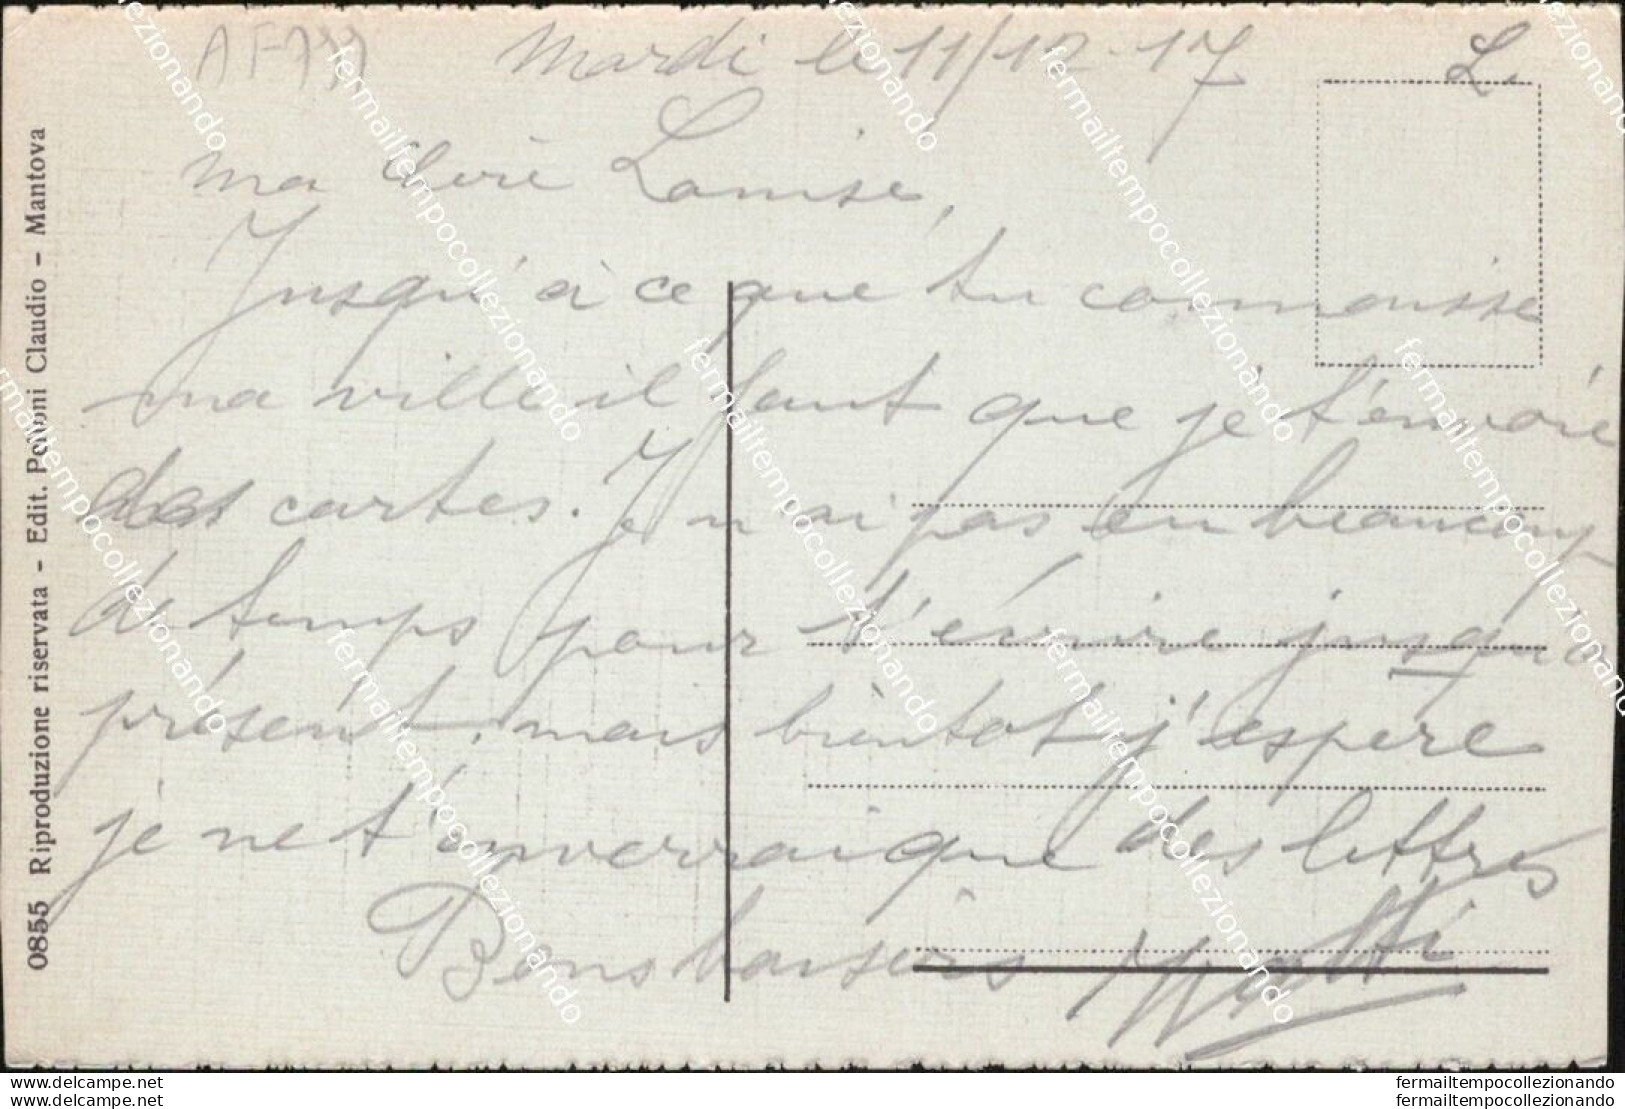 Mardi le 11/12-17
L.
ma chère Louise,
Jusqu'à ce que tu connaisse
ma ville il faut que je t'envoie
des cartes. Je n'ai pas eu beaucoup
de temps pour t'écrire jusqu'à
présent. mais bientot j'espère
je ne t'enverrai que des lettres
Bons baisers
0855 Riproduzione riservata - Edit. Poltoni Claudio - Mantova
fermailtempocollezionando
www.delcampe.net
fermailtempocollezionando
www.delcampe.net
fermailtempocollezionando